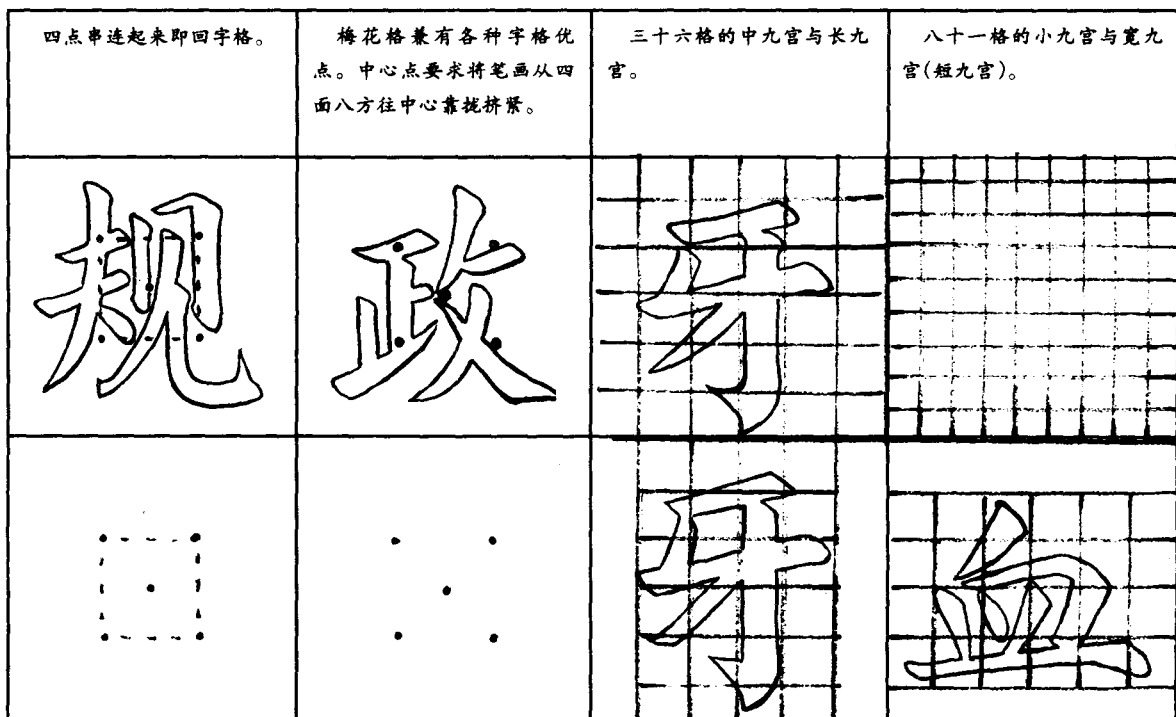 四点串连起来即回字格。
梅花格兼有各种字格优
点。中心点要求将笔画从四
面八方往中心靠拢挤紧。
三十六格的中九宫与长九
宫。
八十一格的小九宫与宽九
宫(短九宫)。
规
政
牙
牙
血